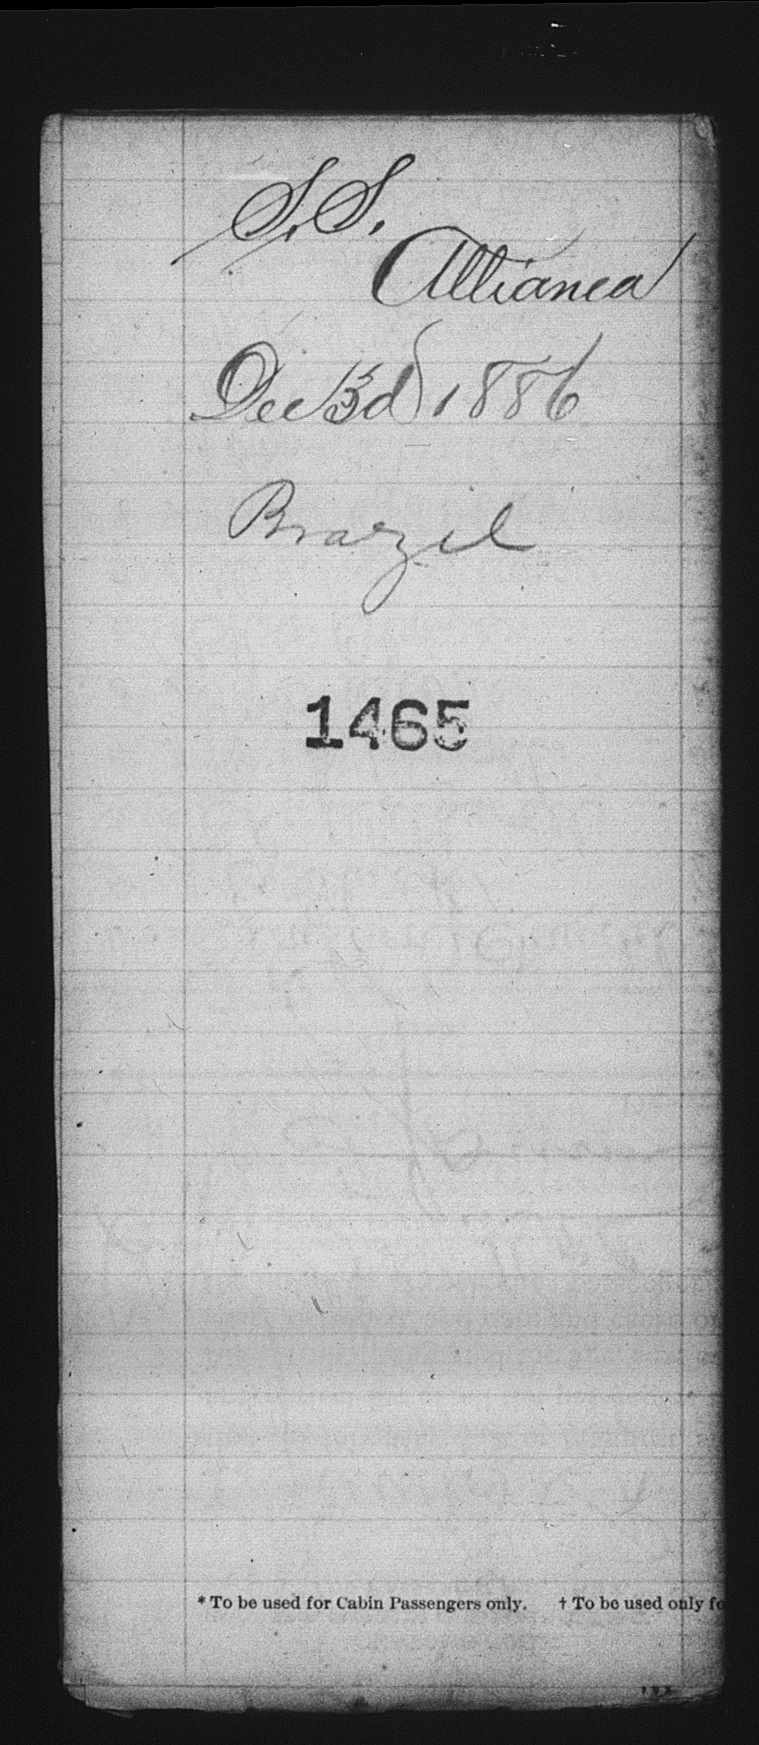 S.S.
Allianca
Dec 3d 1886
Brazil
1465
* To be used for Cabin Passengers only. † To be used only fo